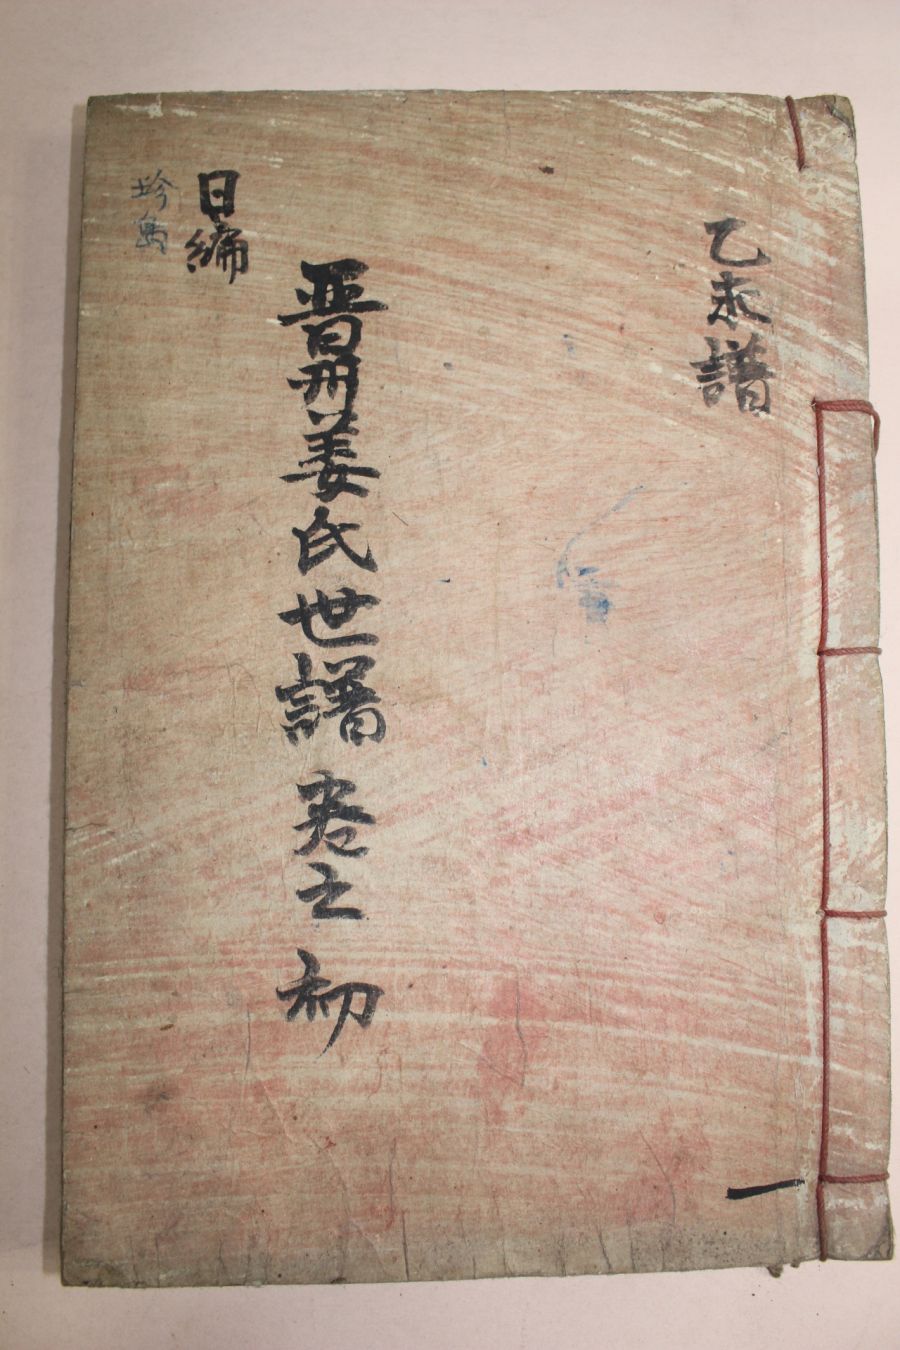 乙未譜
晋州姜氏世譜 卷之初
日編
珍島
一